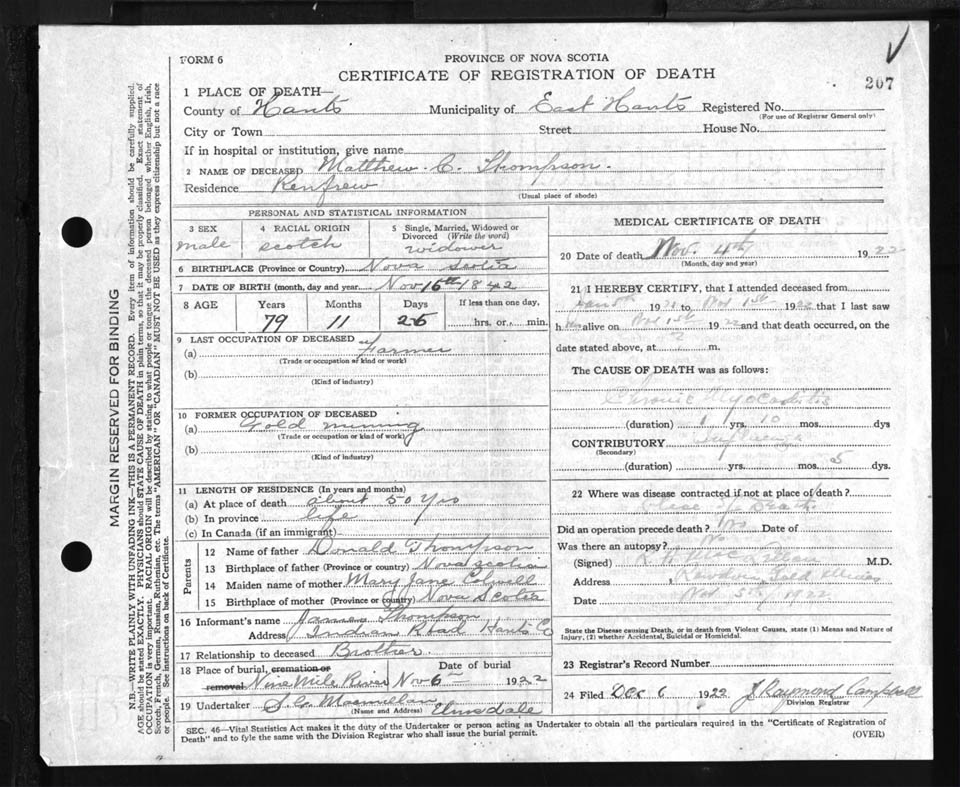 FORM 6
PROVINCE OF NOVA SCOTIA
CERTIFICATE OF REGISTRATION OF DEATH
207
1 PLACE OF DEATH—
County of Hants Municipality of East Hants Registered No.
(For use of Registrar General only)
City or Town Street House No.
If in hospital or institution, give name
2 NAME OF DECEASED Matthew. C. Thompson.
Residence Renfrew
(Usual place of abode)
PERSONAL AND STATISTICAL INFORMATION
3 SEX
male
4 RACIAL ORIGIN
scotch
5 Single, Married, Widowed or Divorced (Write the word)
widower
6 BIRTHPLACE (Province or Country) Nova Scotia
7 DATE OF BIRTH (month, day and year) Nov 16th 1842
8 AGE Years Months Days If less than one day,
79 11 hrs. or min.
9 LAST OCCUPATION OF DECEASED
(a) Farmer
(Trade or occupation or kind or work)
(b)
(Kind of industry)
10 FORMER OCCUPATION OF DECEASED
(a) Gold mining
(Trade or occupation or kind of work)
(b)
(Kind of industry)
11 LENGTH OF RESIDENCE (In years and months)
(a) At place of death about 50 Yrs
(b) In province life
(c) In Canada (if an immigrant)
Parents
12 Name of father Donald Thompson
13 Birthplace of father (Province or country) Nova Scotia
14 Maiden name of mother Mary Jane Colwell
15 Birthplace of mother (Province or country) Nova Scotia
16 Informant's name James Thompson
Address Indian Road Hants Co
17 Relationship to deceased Brother
18 Place of burial, cremation or removal Nine Mile River
Date of burial
Nov 6th 1922
19 Undertaker Macmillan Elmsdale
(Name and Address)
MEDICAL CERTIFICATE OF DEATH
20 Date of death Nov. 4th 1922
(Month, day and year)
21 I HEREBY CERTIFY, that I attended deceased from
19 to Nov 1st 1922 that I last saw
h im alive on Nov 1st 1922 and that death occurred, on the
date stated above, at ? m.
The CAUSE OF DEATH was as follows:
Chronic Myocarditis
(duration) 1 yrs. 10 mos. dys
CONTRIBUTORY Influenza
(Secondary)
(duration) yrs. mos. 5 dys.
22 Where was disease contracted if not at place of death?
Place of Death
Did an operation precede death? No Date of
Was there an autopsy? No
(Signed) M.D.
Address Rawdon Gold Mines
Date Nov 5th 1922
State the Disease causing Death, or in death from Violent Causes, state (1) Means and Nature of
Injury, (2) whether Accidental, Suicidal or Homicidal.
23 Registrar's Record Number
24 Filed Dec 6 1922 J Raymond Campbell
Division Registrar
SEC. 46—Vital Statistics Act makes it the duty of the Undertaker or person acting as Undertaker to obtain all the particulars required in the "Certificate of Registration of
Death" and to fyle the same with the Division Registrar who shall issue the burial permit.
(OVER)
MARGIN RESERVED FOR BINDING
N.B.—WRITE PLAINLY WITH UNFADING INK—THIS IS A PERMANENT RECORD. Every item of information should be carefully supplied.
AGE should be stated EXACTLY. PHYSICIANS should STATE CAUSE OF DEATH in plain terms, so that it may be properly classified. Exact statement of
OCCUPATION is very important. RACIAL ORIGIN will be described by stating to what people or tongue the deceased person belonged whether English, Irish,
Scotch, French, German, Russian, Ruthenian, etc. The terms "AMERICAN" OR "CANADIAN" MUST NOT BE USED as they express citizenship but not a race
or people. See instructions on back of Certificate.